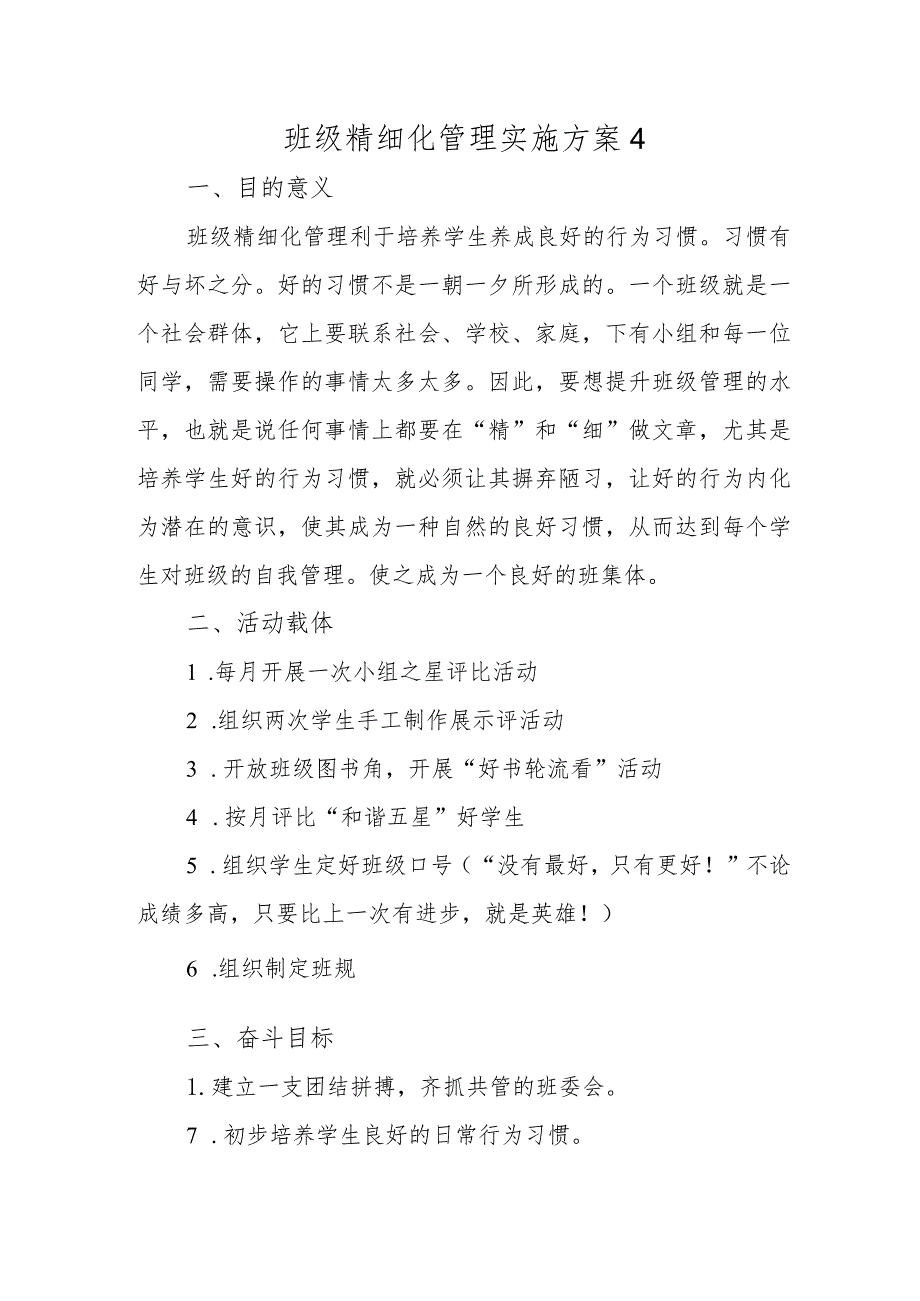 班级精细化管理实施方案4
一、目的意义
班级精细化管理利于培养学生养成良好的行为习惯。习惯有
好与坏之分。好的习惯不是一朝一夕所形成的。一个班级就是一
个社会群体，它上要联系社会、学校、家庭，下有小组和每一位
同学，需要操作的事情太多太多。因此，要想提升班级管理的水
平，也就是说任何事情上都要在“精”和“细”做文章，尤其是
培养学生好的行为习惯，就必须让其摒弃陋习，让好的行为内化
为潜在的意识，使其成为一种自然的良好习惯，从而达到每个学
生对班级的自我管理。使之成为一个良好的班集体。
二、活动载体
1 .每月开展一次小组之星评比活动
2 .组织两次学生手工制作展示评活动
3 .开放班级图书角，开展“好书轮流看”活动
4 .按月评比“和谐五星”好学生
5 .组织学生定好班级口号（“没有最好，只有更好！”不论
成绩多高，只要比上一次有进步，就是英雄！）
6 .组织制定班规
三、奋斗目标
1.建立一支团结拼搏，齐抓共管的班委会。
7 .初步培养学生良好的日常行为习惯。